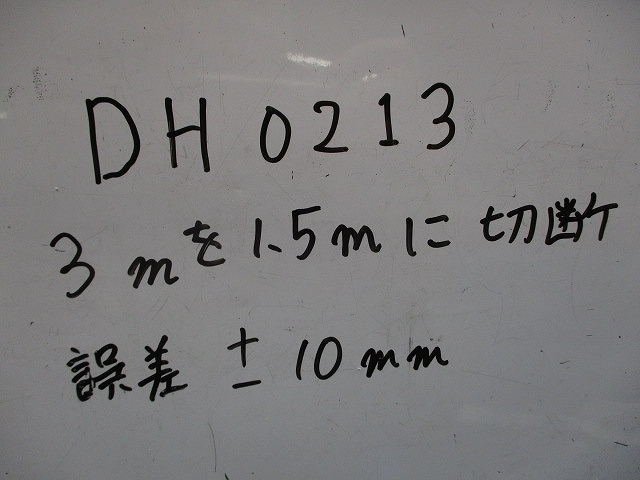 DH 0213
3mを1.5mに切断
誤差 ±10mm